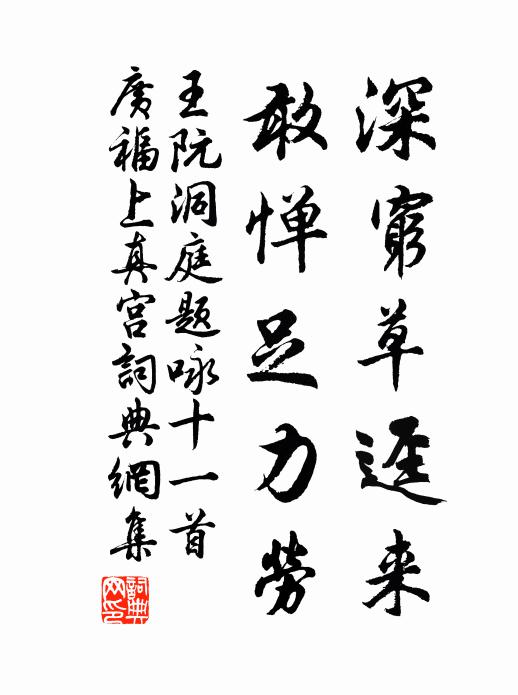 深窮草逕来
敢惮足力勞
王阮洞庭题咏十一首
廣福上真宫詞典網集
詞典网印